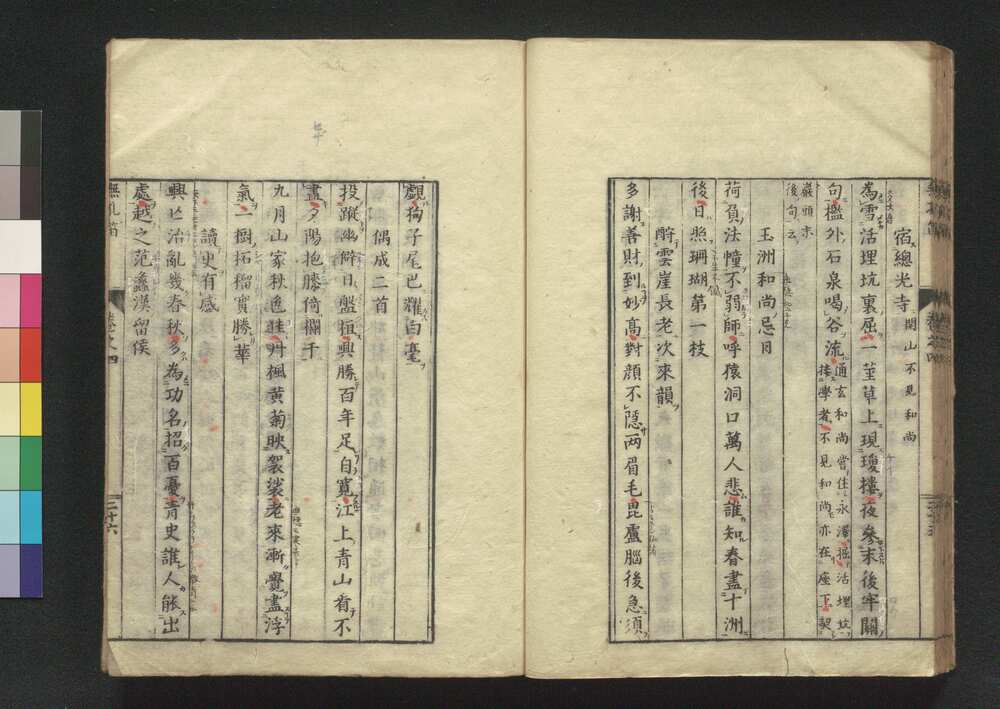 宿總光寺 開山不見和尚
為雪活埋坑裏屈一莖草上現瓊樓夜參末後牢關
句檻外石泉喝谷流 通玄和尚嘗住永澤掘活埋坑
接學者不見和尚亦在座下契
巖頭末
後句云
玉洲和尚忌日
荷負法幢不弱師呼猿洞口萬人悲誰知春盡十洲
後日照珊瑚第一枝
酧雲崖長老次來韻
多謝善財到妙高對顔不隱两眉毛毘盧腦後急須
覷狗子尾巴糶白毫
偶成二首
投蹤幽僻日盤桓興勝百年足自寬江上青山看不
盡夕陽抱膝倚欄干
九月山家秋色佳丹楓黃菊映袈裟老來漸覺盡浮
氣一樹柘榴實勝華
讀史有感
興亡治亂幾春秋多為功名招百憂青史誰人能出
處越之范蠡漢留侯
無孔笛
卷之四
二十六